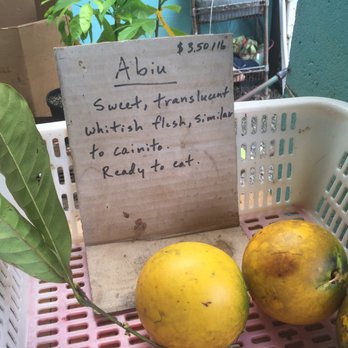 $3.50/lb
Abiu
Sweet, translucent
whitish flesh, similar
to cainito.
Ready to eat.